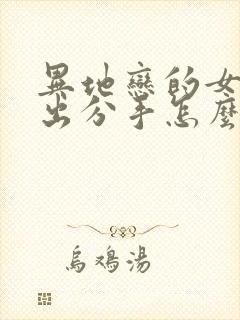 異地戀的女
出分手怎麼
烏鴉湯